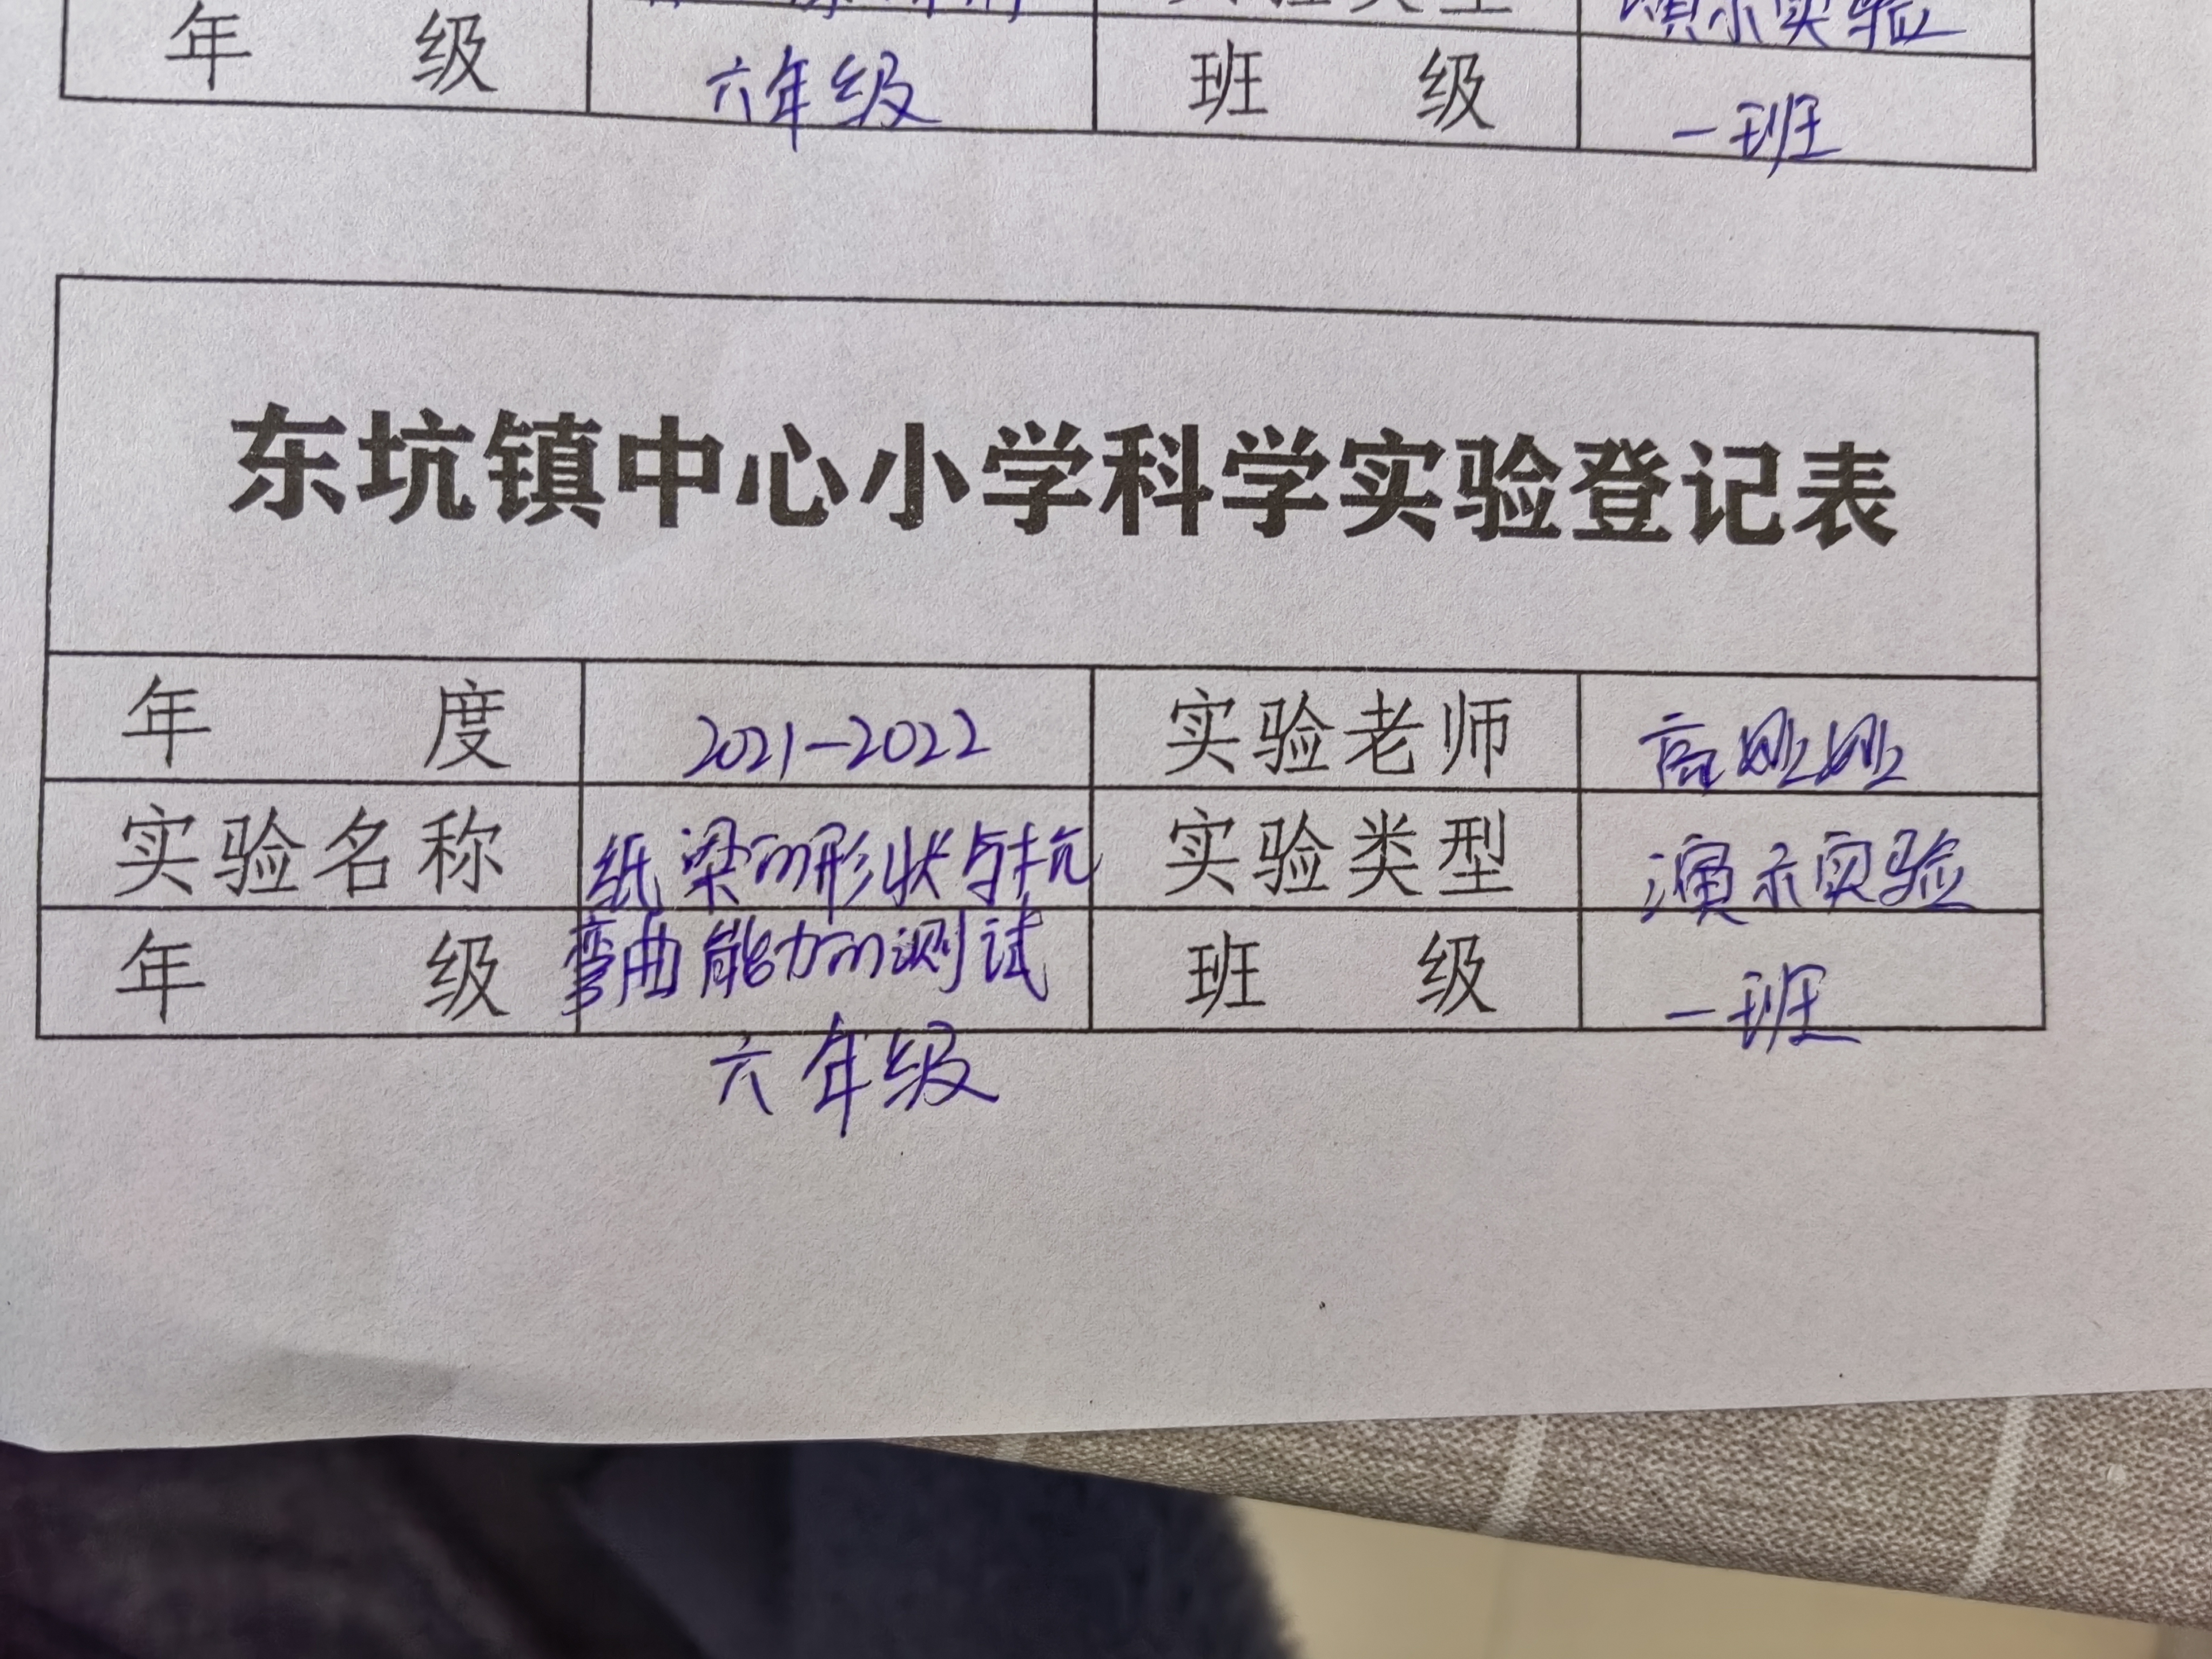 实验类型 演示实验
年 级 六年级 班 级 一班
东坑镇中心小学科学实验登记表
年 度 2021-2022 实验老师 高
实验名称 纸梁的形状与抗 实验类型 演示实验
年 级 弯曲能力的测试 班 级 一班
六年级